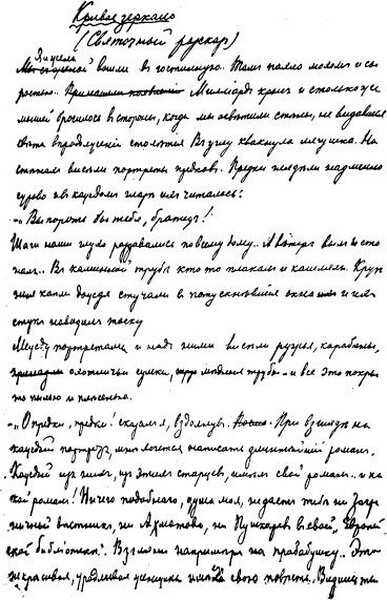 Кривое зеркало
(Святочный рассказ)
Я и жена
Мы с женой вошли в гостиную. Там пахло мохом и сы
ростью. Миллионы крыс и столько же
мышей бросилось в стороны, когда мы осветили стены, не видавшие
света в продолжении столетия. В углу квакнула лягушка. На
стенах висели портреты предков. Предки глядели надменно
сурово и в каждом взгляде их читалось:
— „Выпороть бы тебя, братец!
Шаги наши глухо раздавались по всему дому. А ветер выл и сто
нал.. В каминной трубе кто то плакал и кашлял. Круп
ные капли дождя стучали в потускневшие окна и их
стук наводил тоску
Между портретами и над ними висели ружья, карабины,
охотничьи сумки, медные трубы — и все это покры
то пылью и
— „О предки, предки! сказал я, вздохнув. При взгляде на
каждый портрет, мне хочется написать длиннейший роман.
Каждый из них, из этих старцев, имел свой роман.. и ка
кой роман! Ничего подобного, душа моя, не даст тебе ни Загра
ничный вестник, ни Ахматова, ни Пушкарев в своей „Европей
ской библиотеке“. Взгляни например на прабабушку.. Эта
некрасивая, уродливая женщина имеет свою повесть. Видишь ты